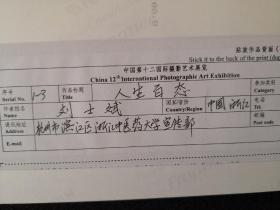 贴在作品背面(
Stick it to the back of the print (du
中国第十二国际摄影艺术展览
China 12th International Photographic Art Exhibition
序号 Serial No. 1-3 作品标题 Title 人生百态 参加类别 Category
作者姓名 Name 刘士斌 国家/省份 Country/Region 中国 浙江 电话 Tel.
通讯地址 Address 杭州市滨江区浙江中医药大学宣传部 邮编 Post code
E-mail